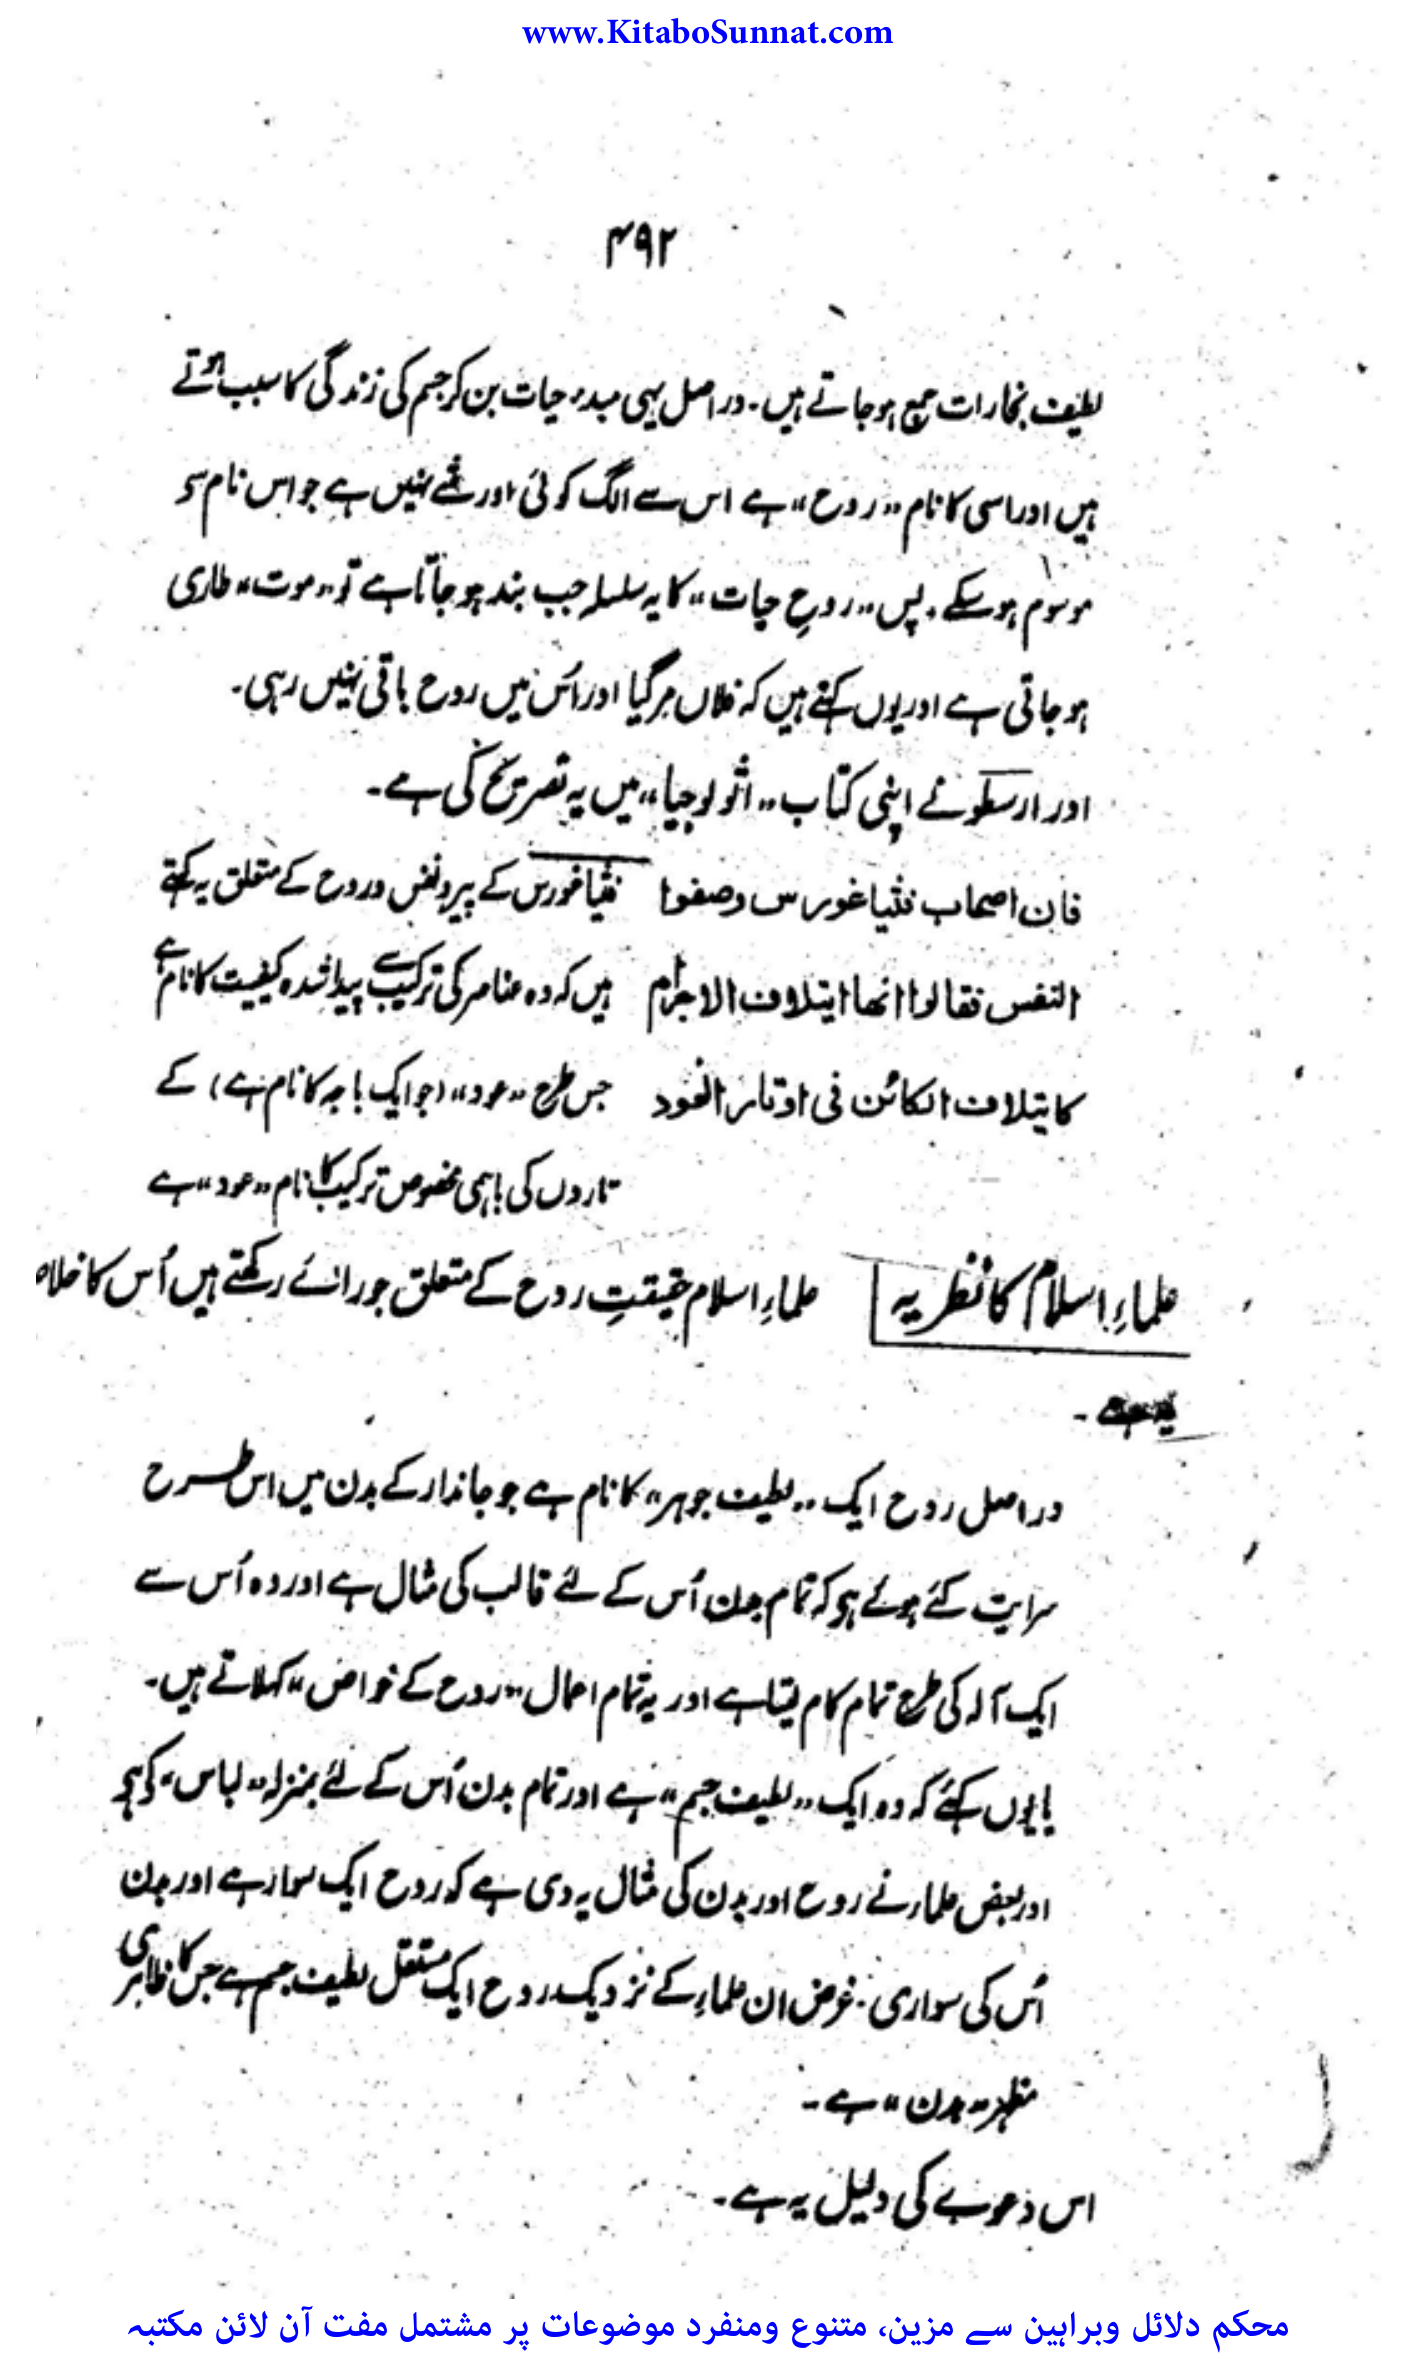 www.KitaboSunnat.com
۴۹۲
لطیف بخارات جمع ہو جاتے ہیں۔ در اصل یہی مبدءِ حیات بن کر جسم کی زندگی کا سبب ہوتے
ہیں اور اسی کا نام "روح" ہے اس سے الگ کوئی اور شے نہیں ہے جو اس نام سے
موسوم ہو سکے۔ پس "روحِ حیات" کا یہ سلسلہ جب بند ہو جاتا ہے تو "موت" طاری
ہو جاتی ہے اور یوں کہتے ہیں کہ فلاں مر گیا اور اُس میں روح باقی نہیں رہی۔
اور ارسطو نے اپنی کتاب "اثولوجیا" میں یہ تصریح کی ہے۔
فان اصحاب فثیاغورس وصفوا فثیاغورس کے پیرو نفس و روح کے متعلق یہ کہتے
النفس فقالوا انها ایتلاف الاجرام ہیں کہ وہ عناصر کی ترکیب سے پیدا شدہ کیفیت کا نام ہے
کایتلاف الکائن فی اوتار العود جس طرح "عود" (جو ایک باجہ کا نام ہے) کے
تاروں کی باہمی مخصوص ترکیب کا نام "عود" ہے
علماءِ اسلام کا نظریہ علماءِ اسلام حقیقتِ روح کے متعلق جو رائے رکھتے ہیں اُس کا خلاصہ
یہ ہے۔
در اصل روح ایک "لطیف جوہر" کا نام ہے جو جاندار کے بدن میں اس طرح
سرایت کئے ہوئے ہو کہ تمام بدن اُس کے لئے قالب کی مثال ہے اور وہ اُس سے
ایک آلہ کی طرح تمام کام لیتا ہے اور یہ تمام اعمال "روح کے خواص" کہلاتے ہیں۔
یا یوں کہئے کہ وہ ایک "لطیف جسم" ہے اور تمام بدن اُس کے لئے بمنزلہ "لباس" کے ہے
اور بعض علماء نے روح اور بدن کی مثال یہ دی ہے کہ روح ایک سوار ہے اور بدن
اُس کی سواری۔ غرض ان علماءِ کے نزدیک روح ایک مستقل لطیف جسم ہے جس کا ظاہری
مظہر "بدن" ہے۔
اس دعوے کی دلیل یہ ہے۔
محکم دلائل وبراہین سے مزین، متنوع ومنفرد موضوعات پر مشتمل مفت آن لائن مکتبہ